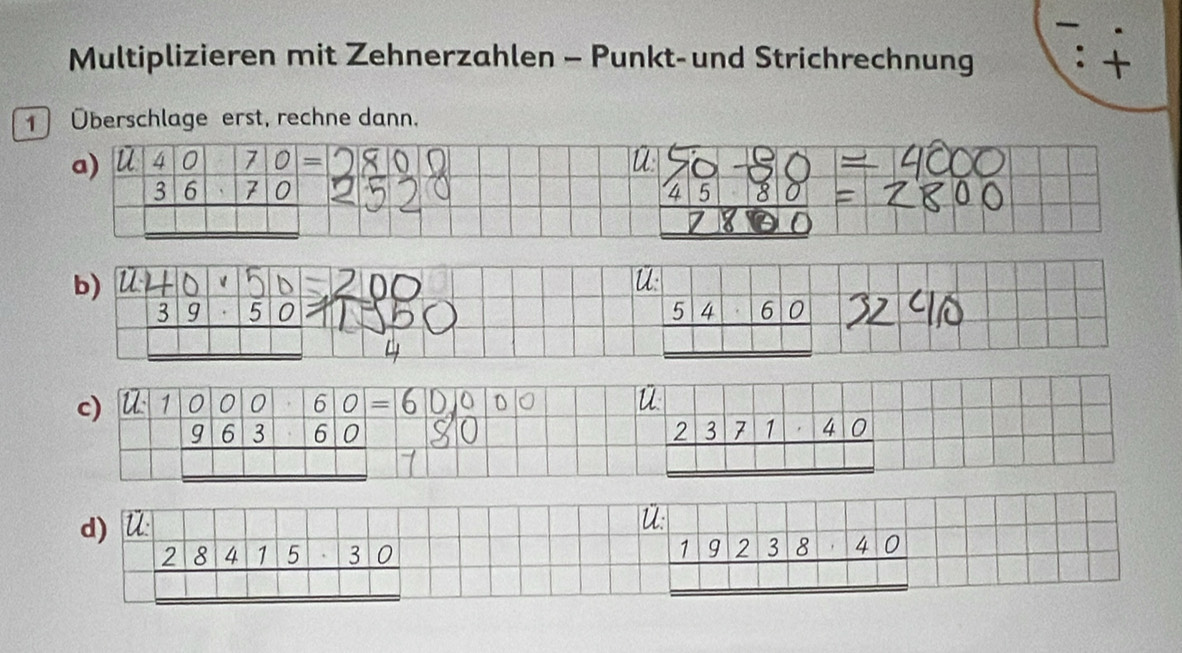 Multiplizieren mit Zehnerzahlen – Punkt- und Strichrechnung
− · : +
1 Überschlage erst, rechne dann.
a) Ü: 40 · 70 = 2800
36 · 70 2520
Ü: 50 · 80 = 4000
45 · 80 = 2800
2800
b) Ü: 40 · 50 = 200
39 · 50 = 1350
4
Ü:
54 · 60 3240
c) Ü: 1000 · 60 = 60000
963 · 60 80
1
Ü:
2371 · 40
d) Ü:
28415 · 30
Ü:
19238 · 40